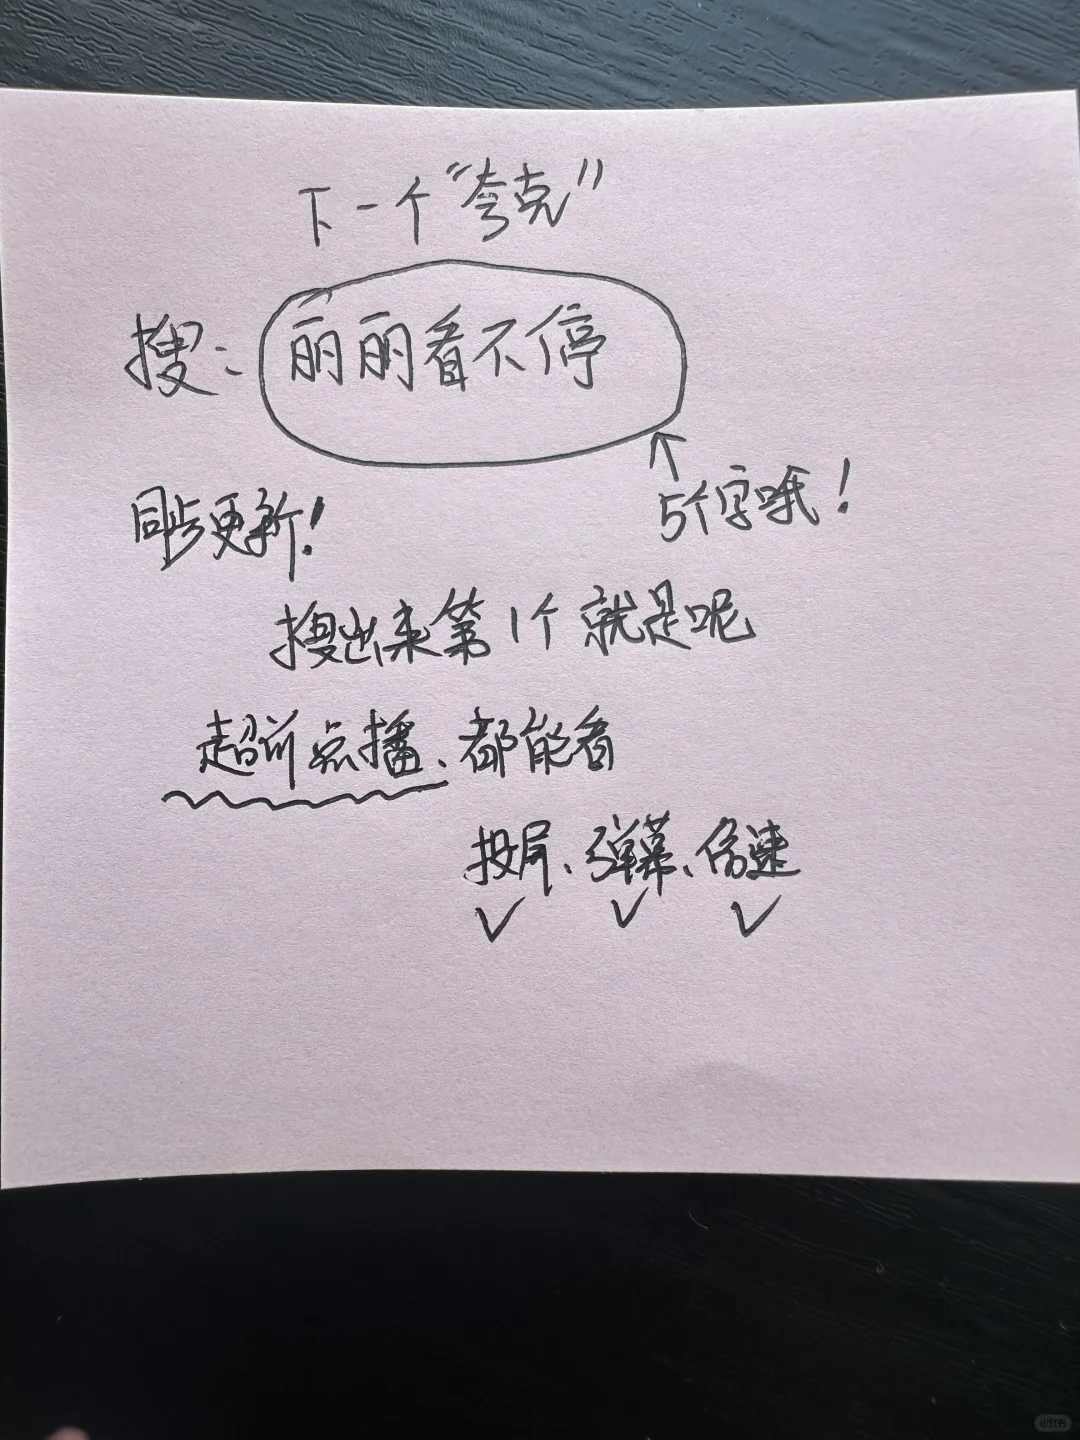 下一个“夸克”
搜：丽丽看不停
↑
5个字哦！
同步更新！
搜出来第1个就是呢
超前点播、都能看
投屏、弹幕、倍速
✓ ✓ ✓
小红书